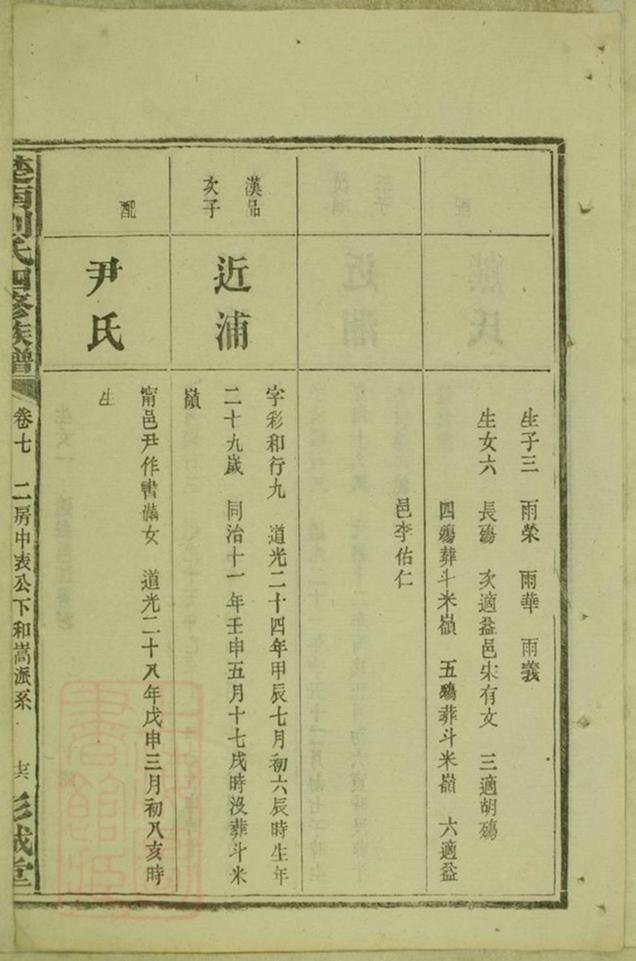 生子三 雨榮 雨華 雨義
生女六 長殤 次適益邑宋有文 三適胡殤
四殤葬斗米嶺 五殤葬斗米嶺 六適益
邑李佑仁
漢品
次子
近浦
字彩和行九 道光二十四年甲辰七月初六辰時生年
二十九歲 同治十一年壬申五月十七戌時沒葬斗米
嶺
配
尹氏
甯邑尹作書滿女 道光二十八年戊申三月初八亥時
生
楚南刘氏四修族譜
卷七 二房中表公下和嵩派系
彭城堂